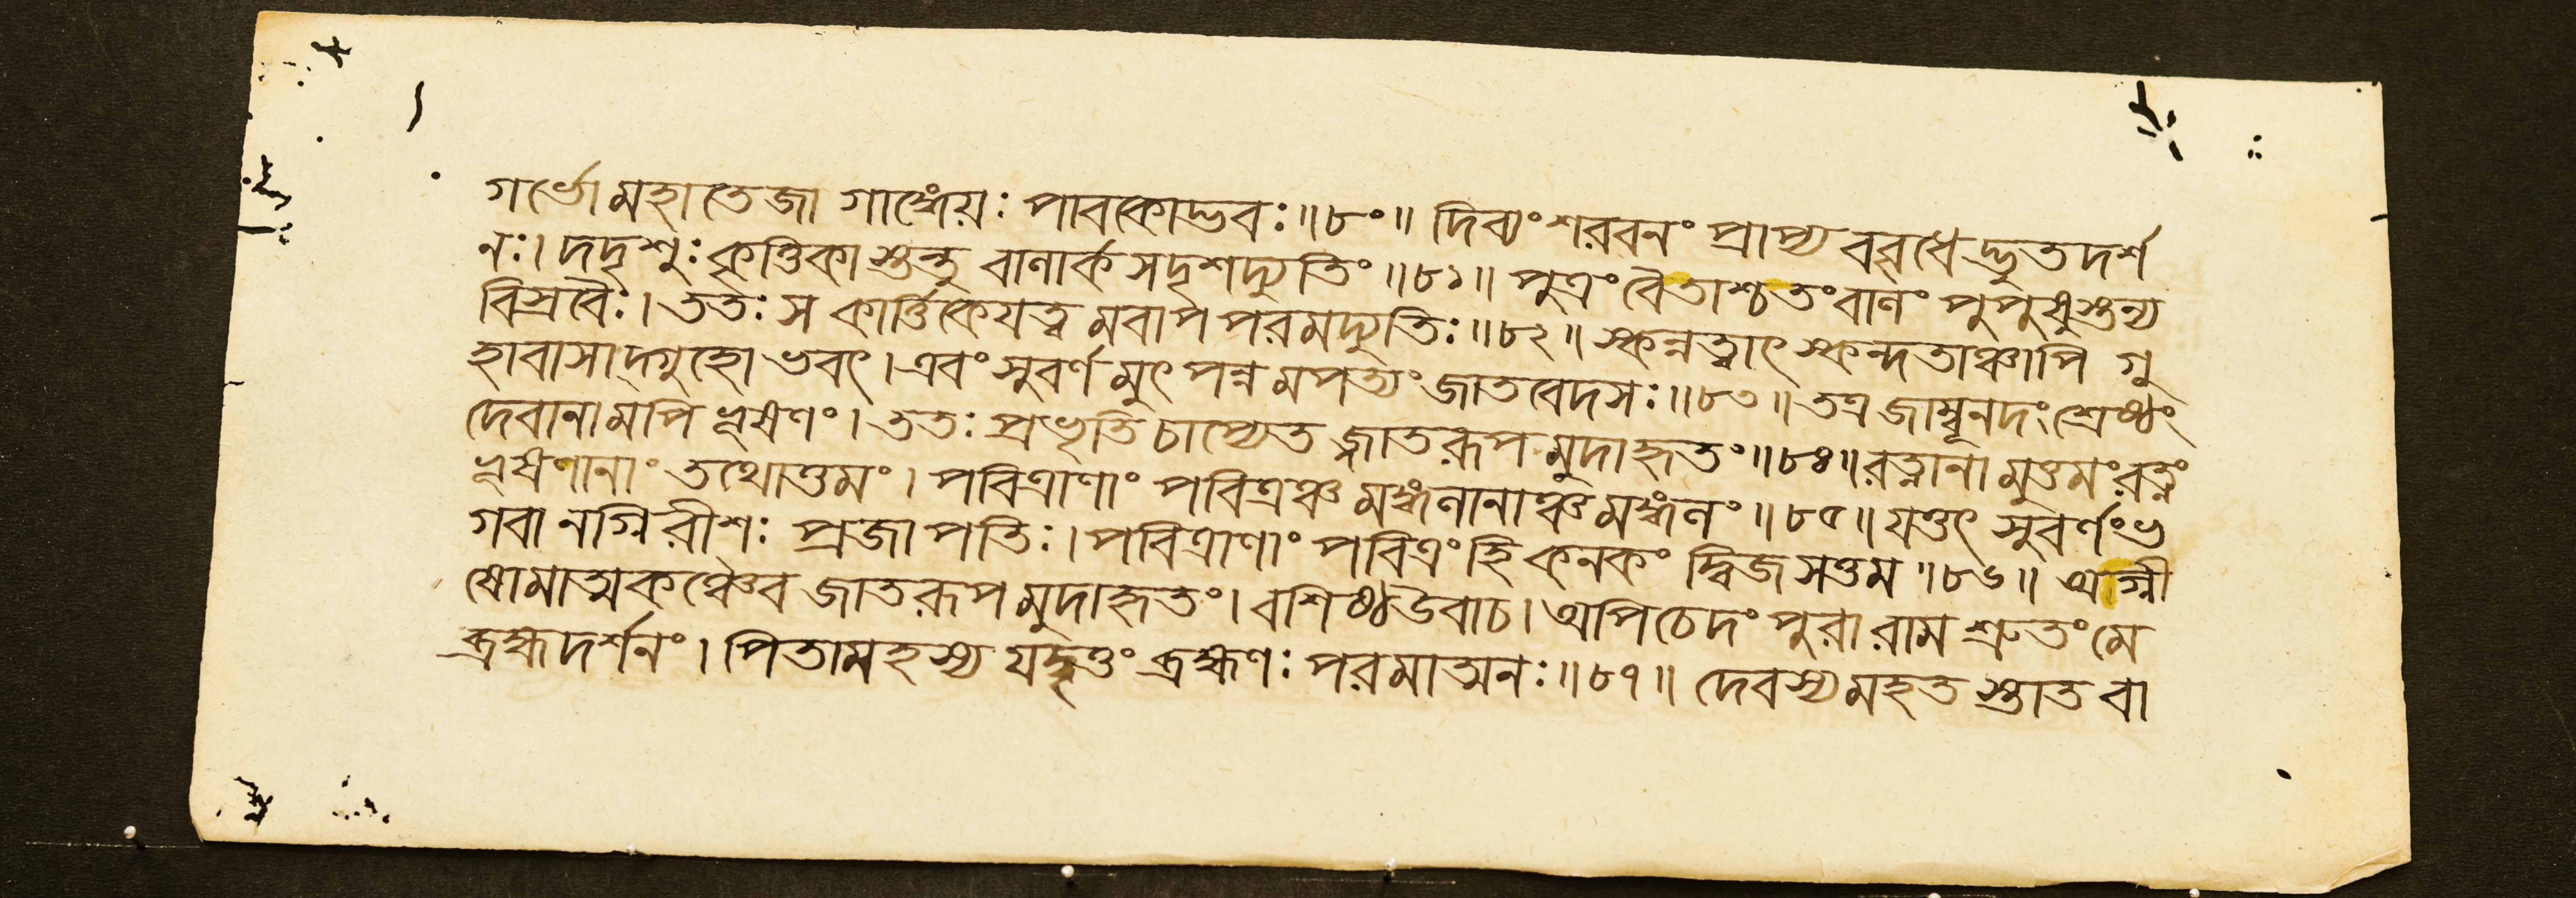 গর্ভো মহাতেজা গাঙ্গেয়ঃ পাবকোদ্ভবঃ॥৮০॥ দিব্যং শরবনং প্রাপ্য ববৃধেদ্ভুতদর্শ
নঃ। দদৃশুঃ কৃত্তিকাস্তন্তু বালার্কসদৃশদ্যুতিং॥৮১॥ পুত্রং বৈ তাশ্চ তং বালং পুপুষুস্তন্য
বিস্রবৈঃ। ততঃ স কার্ত্তিকেযত্বমবাপ পরমদ্যুতিঃ॥৮২॥ স্কন্নত্বাৎ স্কন্দতাঞ্চাপি গু
হাবাসাদ্গুহোভবৎ। এবং সুবর্ণমুৎপন্নমপত্যং জাতবেদসঃ॥৮৩॥ তত্র জাম্বূনদং শ্রেষ্ঠং
দেবানামপি ভূষণং। ততঃ প্রভৃতি চাপ্যেতজ্জাতরূপমুদাহৃতং॥৮৪॥ রত্নানামুত্তমং রত্নং
ভূষণানাং তথোত্তমং। পবিত্রাণাং পবিত্রঞ্চ মঙ্গলানাঞ্চ মঙ্গলং॥৮৫॥ যত্তৎ সুবর্ণং ভ
গবানগ্নিরীশঃ প্রজাপতিঃ। পবিত্রাণাং পবিত্রং হি কনকং দ্বিজসত্তম॥৮৬॥ অগ্নী
ষোমাত্মকঞ্চৈব জাতরূপমুদাহৃতং। বশিষ্ঠ উবাচ। অপি চেদং পুরা রাম শ্রুতং মে
ব্রহ্মদর্শনং। পিতামহস্য যদ্বৃত্তং ব্রহ্মণঃ পরমাত্মনঃ॥৮৭॥ দেবস্য মহতস্তাত বা